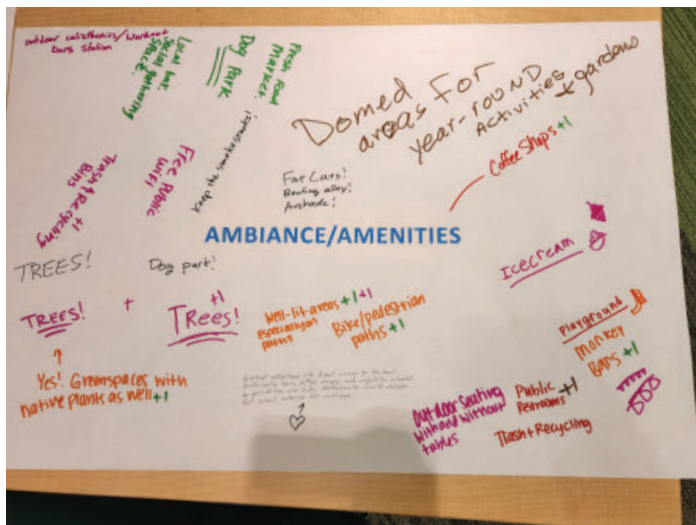 outdoor calisthenics/workout
bars station
Local bnt.
Social Gathering
Space.
Dog Park
Fresh Food
Market.
Domed
areas For
year-round
Activities
+ gardens
Trash & Recycling
Bins +1
Free Public
WiFi
Keep the smokestacks!
Fat Cats!
Bowling alley!
Archade!
Coffee Shops +1
AMBIANCE/AMENITIES
TREES!
Dog part!
Icecream
TREES! + TRees! +1
Well-lit areas +1 +1
especially on
paths
Bike/pedestrian
paths +1
Playground
Monkey
Bars +1
Yes! Greenspaces with
native plants as well +1
Outdoor seating
with and without
tables
Public +1
Restrooms
Trash + Recycling